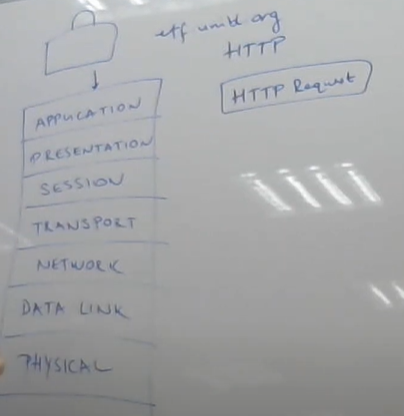 etf.unibl.org
HTTP
HTTP Request
APPLICATION
PRESENTATION
SESSION
TRANSPORT
NETWORK
DATA LINK
PHYSICAL